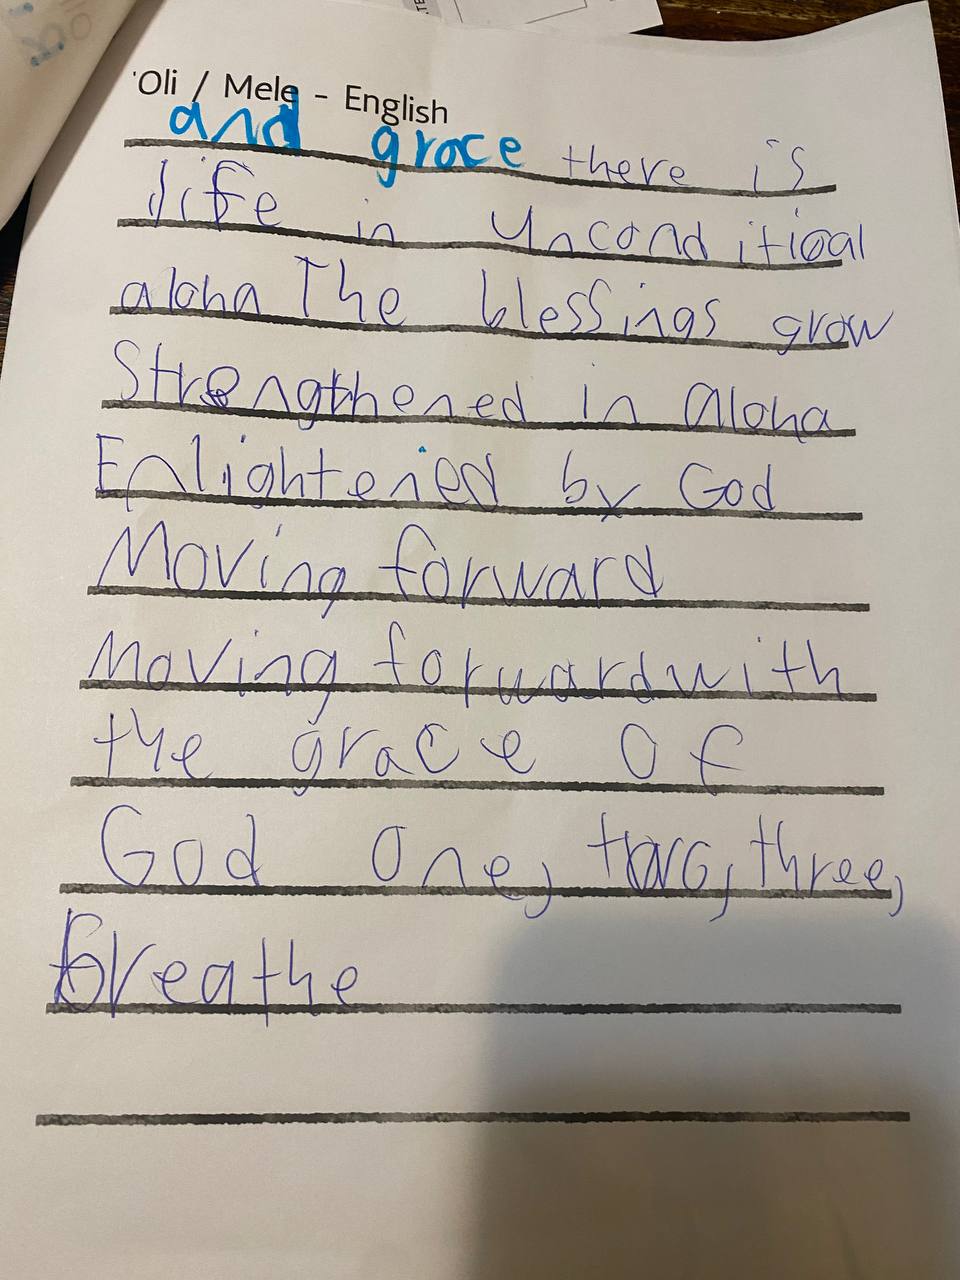 'Oli / Mele - English
and grace there is
life in unconditioal
aloha The blessings grow
Strengthened in aloha
Enlightened by God
Moving forward
Moving forward with
the grace of
God One, two, three,
breathe